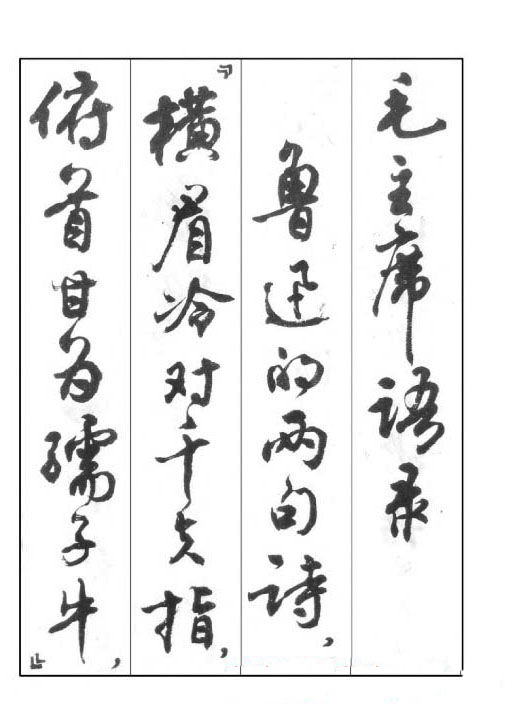 毛主席语录
鲁迅的两句诗，
『横眉冷对千夫指，
俯首甘为孺子牛，』